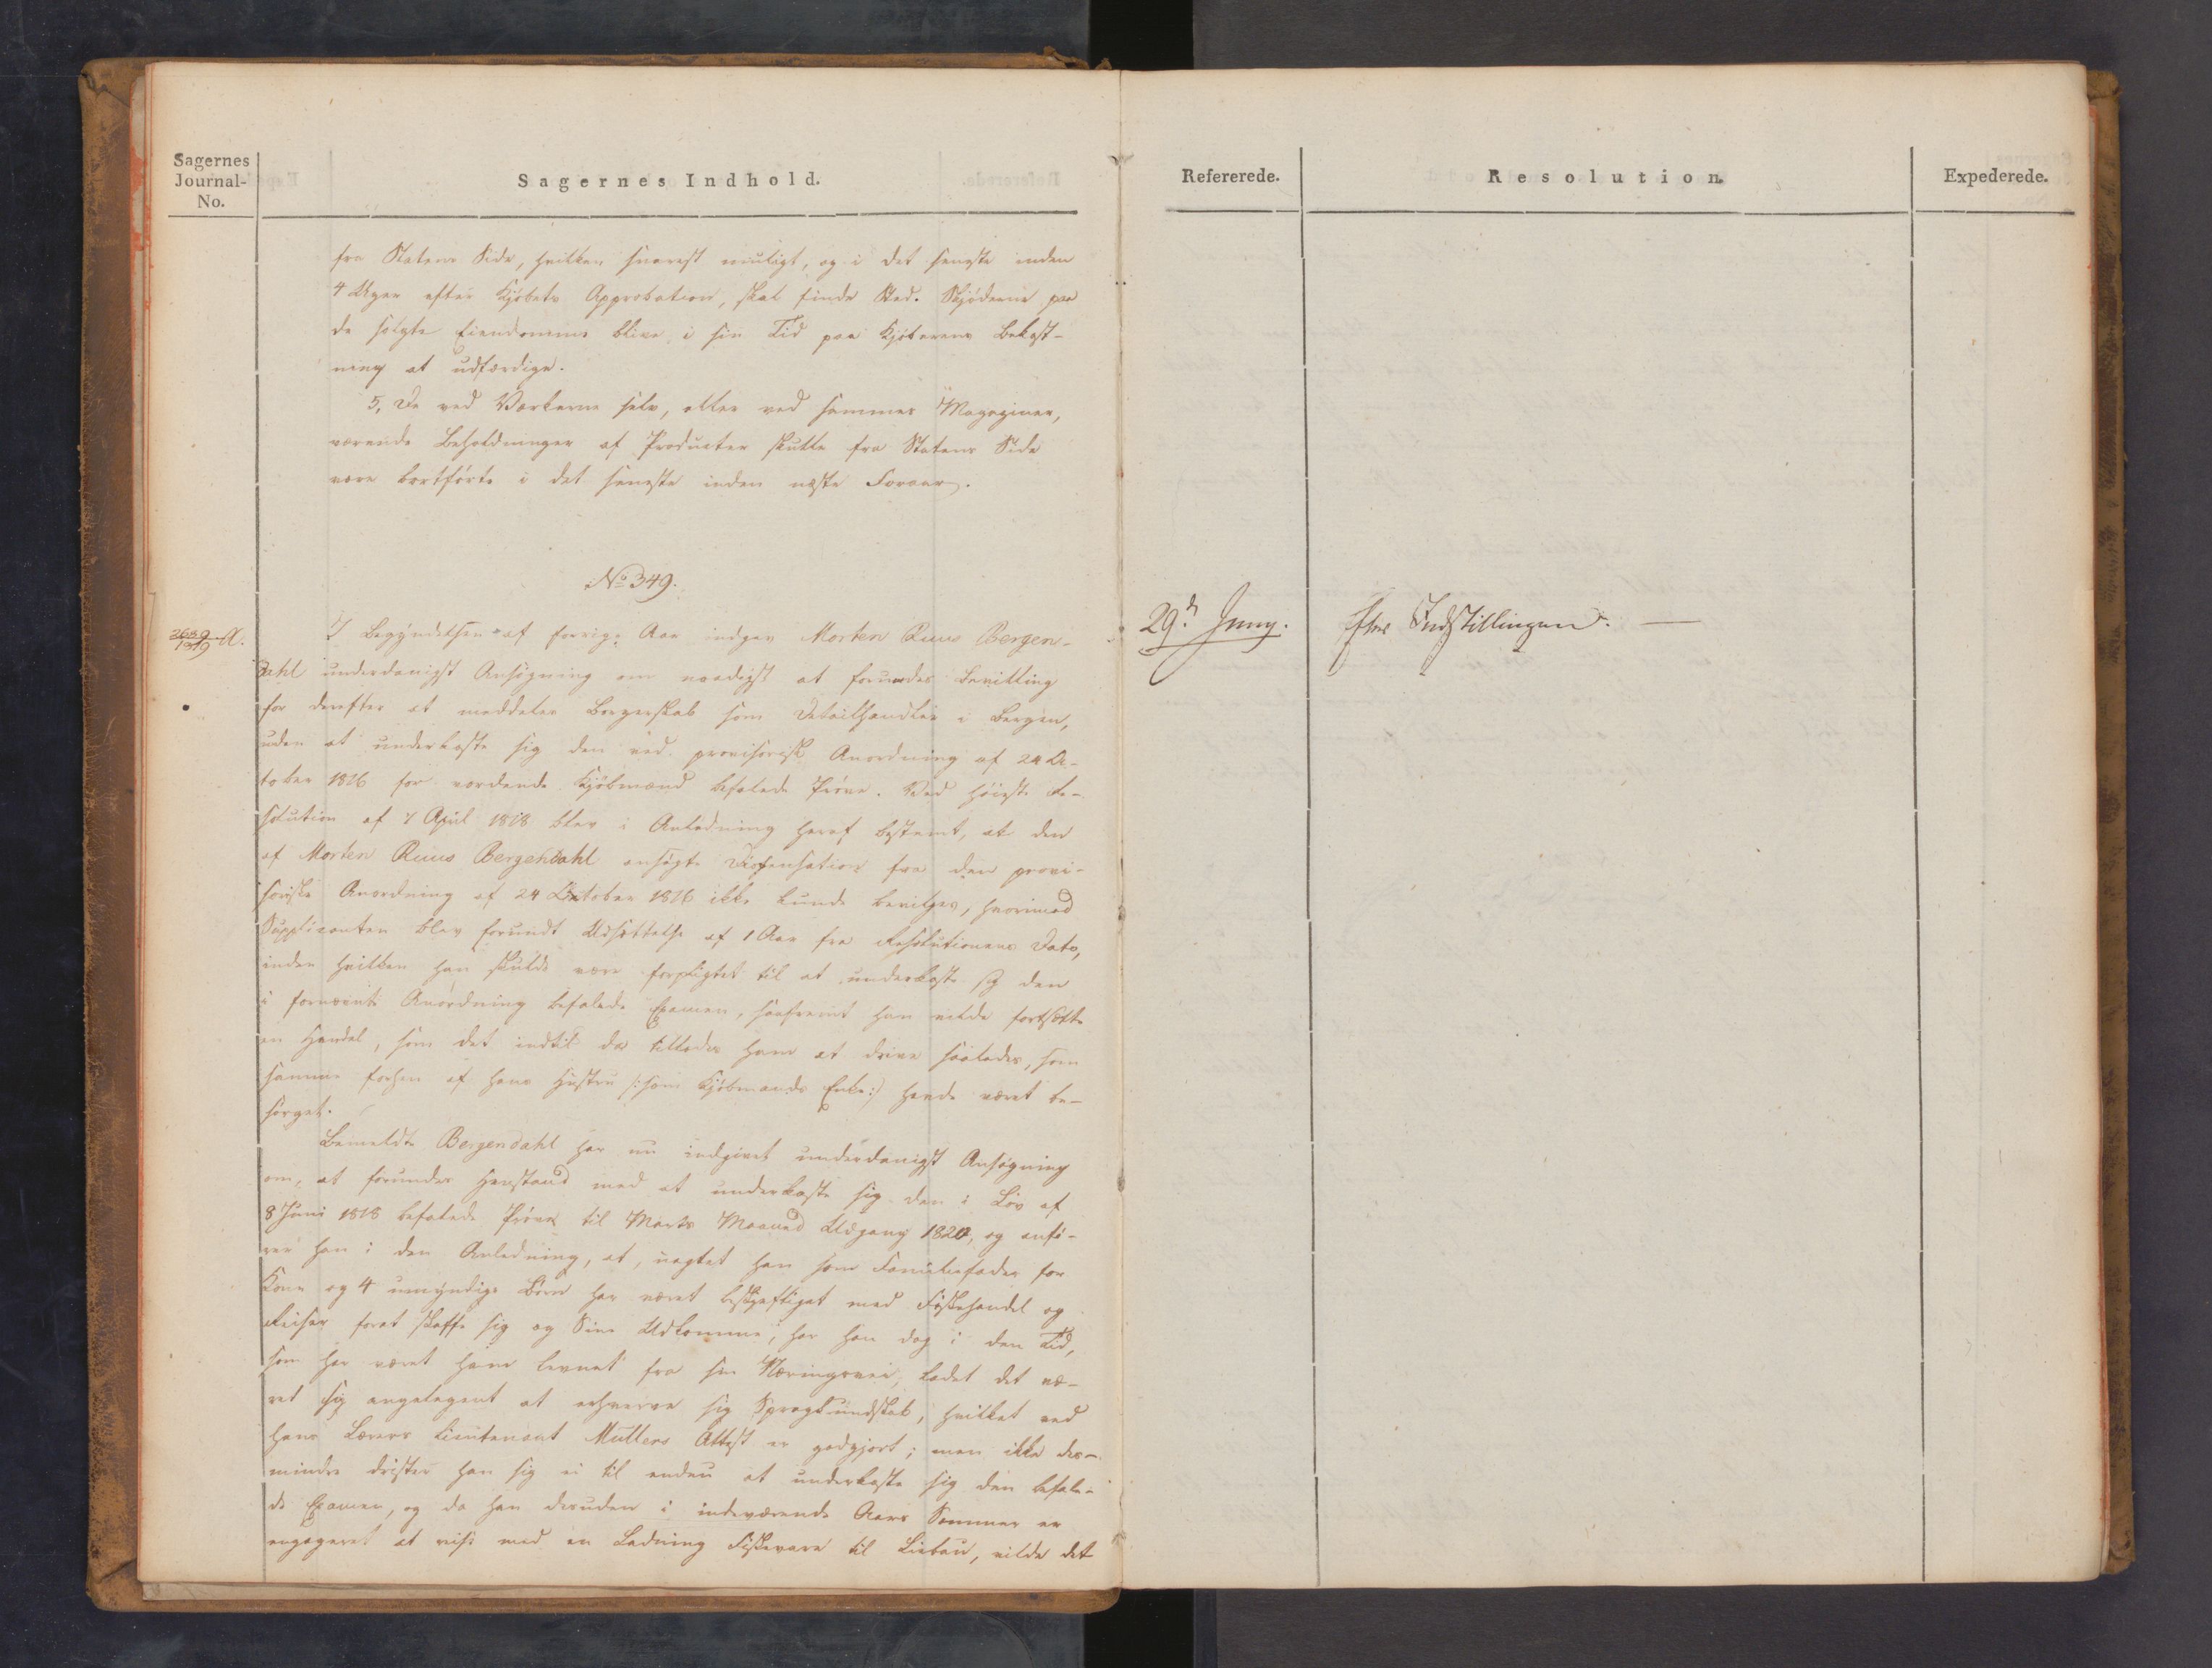 Sagernes
Journal-
No.
Sagernes Indhold.
fra Statens Side, hvilken snarest muligt, og i det seneste inden
4 Uger efter Kjöbets Approbation, skal finde Sted. Skjöderne paa
de solgte Eiendomme blive i sin Tid paa Kjöberens Bekost-
ning at udfærdige.
5, De ved Værkerne selv, eller ved sammes Magaziner,
værende Beholdninger af Producter skulle fra Statens Side
være bortförte i det seneste inden næste Foraar.
No 349.
1819 A.
I Begyndelsen af forrige Aar indgav Morten Ruus Bergen-
dahl underdanigst Ansögning om naadigst at forundes Bevilling
for derefter at meddeles Borgerskab som Detailhandler i Bergen,
uden at underkaste sig den ved provisorisk Anordning af 24 Oc-
tober 1816 for vordende Kjöbmænd befalede Pröve. Ved höieste Re-
solution af 7 April 1818 blev i Anledning heraf bestemt, at den
af Morten Ruus Bergendahl ansögte Dispensation fra den provi-
soriske Anordning af 24 October 1816 ikke kunde bevilges, hvorimod
Supplicanten blev forundt Udsættelse af 1 Aar fra Resolutionens Dato,
inden hvilken han skulde være forpligtet til at underkaste sig den
i fornævnte Anordning befalede Examen, saafremt han vilde fortsætte
en Handel, som det indtil da tillodes ham at drive saaledes, som
samme forhen af hans Hustru /: som Kjöbmands Enke :/ havde været be-
sörget.
Bemeldte Bergendahl har nu indgivet underdanigst Ansögning
om, at forundes Henstand med at underkaste sig den i Lov af
8 Juni 1818 befalede Pröve til Marts Maaned Udgang 1820, og anfö-
rer han i den Anledning, at, uagtet han som Familiefader for
Kone og 4 umyndige Börn har været beskjæftiget med Fiskehandel og
Reiser forat skaffe sig og Sine Udkomme, har han dog i den Tid,
som har været ham levnet fra sin Næringsvei, ladet det væ-
ret sig angelegent at erhverve sig Sprogkundskab, hvilket ved
hans Lærers Lieutenant Mullers Attest er godgjort; men ikke des-
mindre drister han sig ei til endnu at underkaste sig den befale-
de Examen, og da han desuden i indeværende Aars Sommer er
engageret at reise med en Ladning Fiskevare til Liebau, vilde det
Refererede.
Resolution.
Expederede.
29de Juny.
Efter Indstillingen.